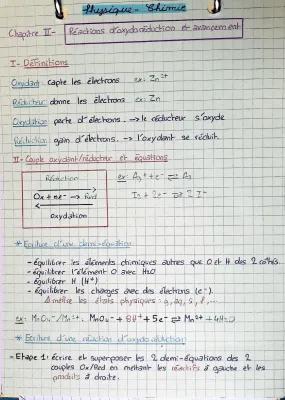 Physique - Chimie
Chapitre II - Réactions d'oxydoréduction et avancement
I - Définitions
Oxydant capte les électrons ex: Zn²⁺
Réducteur donne les électrons ex: Zn
Oxydation perte d'électrons. → le réducteur s'oxyde
Réduction gain d'électrons. → l'oxydant se réduit.
II - Couple oxydant/réducteur et équations
Réduction
Ox + ne⁻ Red
oxydation
ex: Ag⁺ + e⁻ ⇌ Ag
I₂ + 2e⁻ ⇌ 2I⁻
* Ecriture d'une demi-équation
- équilibrer les éléments chimiques autres que O et H des 2 côtés.
- équilibrer l'élément O avec H₂O
- équilibrer H (H⁺)
- équilibrer les charges avec des électrons (e⁻).
⚠ mettre les états physiques: g, aq, s, l, ...
ex: MnO₄⁻/Mn²⁺. MnO₄⁻ + 8H⁺ + 5e⁻ ⇌ Mn²⁺ + 4H₂O
* Ecriture d'une réaction d'oxydoréduction
- Etape 1: écrire et superposer les 2 demi-équations des 2
couples Ox/Red en mettant les réactifs à gauche et les
produits à droite.